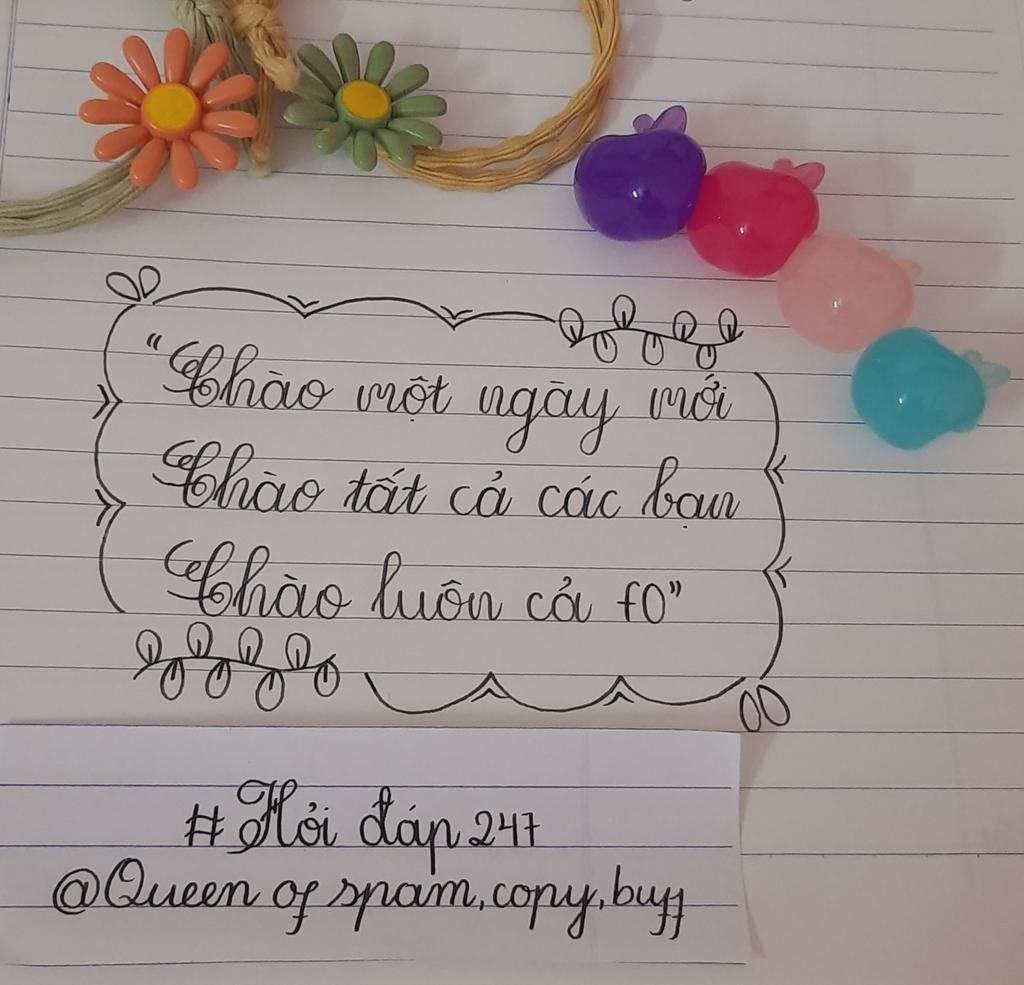 “Chào một ngày mới
Chào tất cả các bạn
Chào luôn cả f0”
#Hỏi đáp 247
@Queen of spam, copy, buff